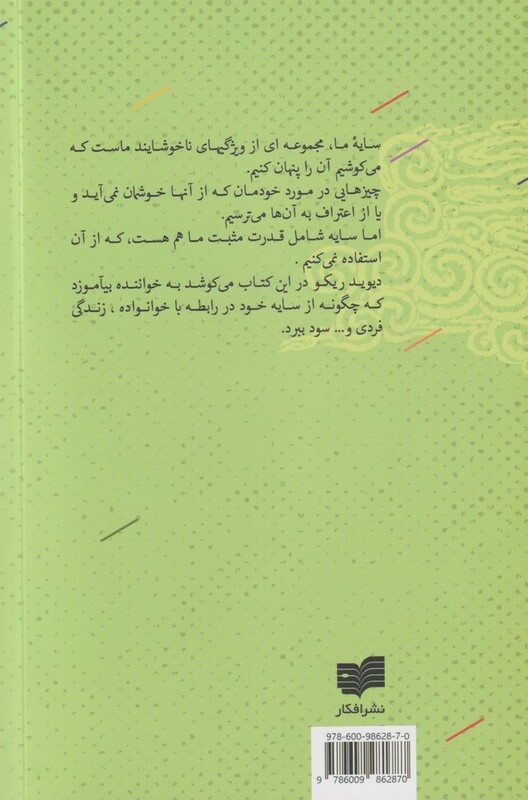 سایهٔ ما، مجموعه ای از ویژگیهای ناخوشایند ماست که
می‌کوشیم آن را پنهان کنیم.
چیزهایی در مورد خودمان که از آنها خوشمان نمی‌آید و
یا از اعتراف به آن‌ها می‌ترسیم.
اما سایه شامل قدرت مثبت ما هم هست، که از آن
استفاده نمی‌کنیم .
دیوید ریکو در این کتاب می‌کوشد به خواننده بیآموزد
که چگونه از سایه خود در رابطه با خوانواده ، زندگی
فردی و... سود ببرد.
نشر افکار
978-600-98628-7-0
9 786009 862870